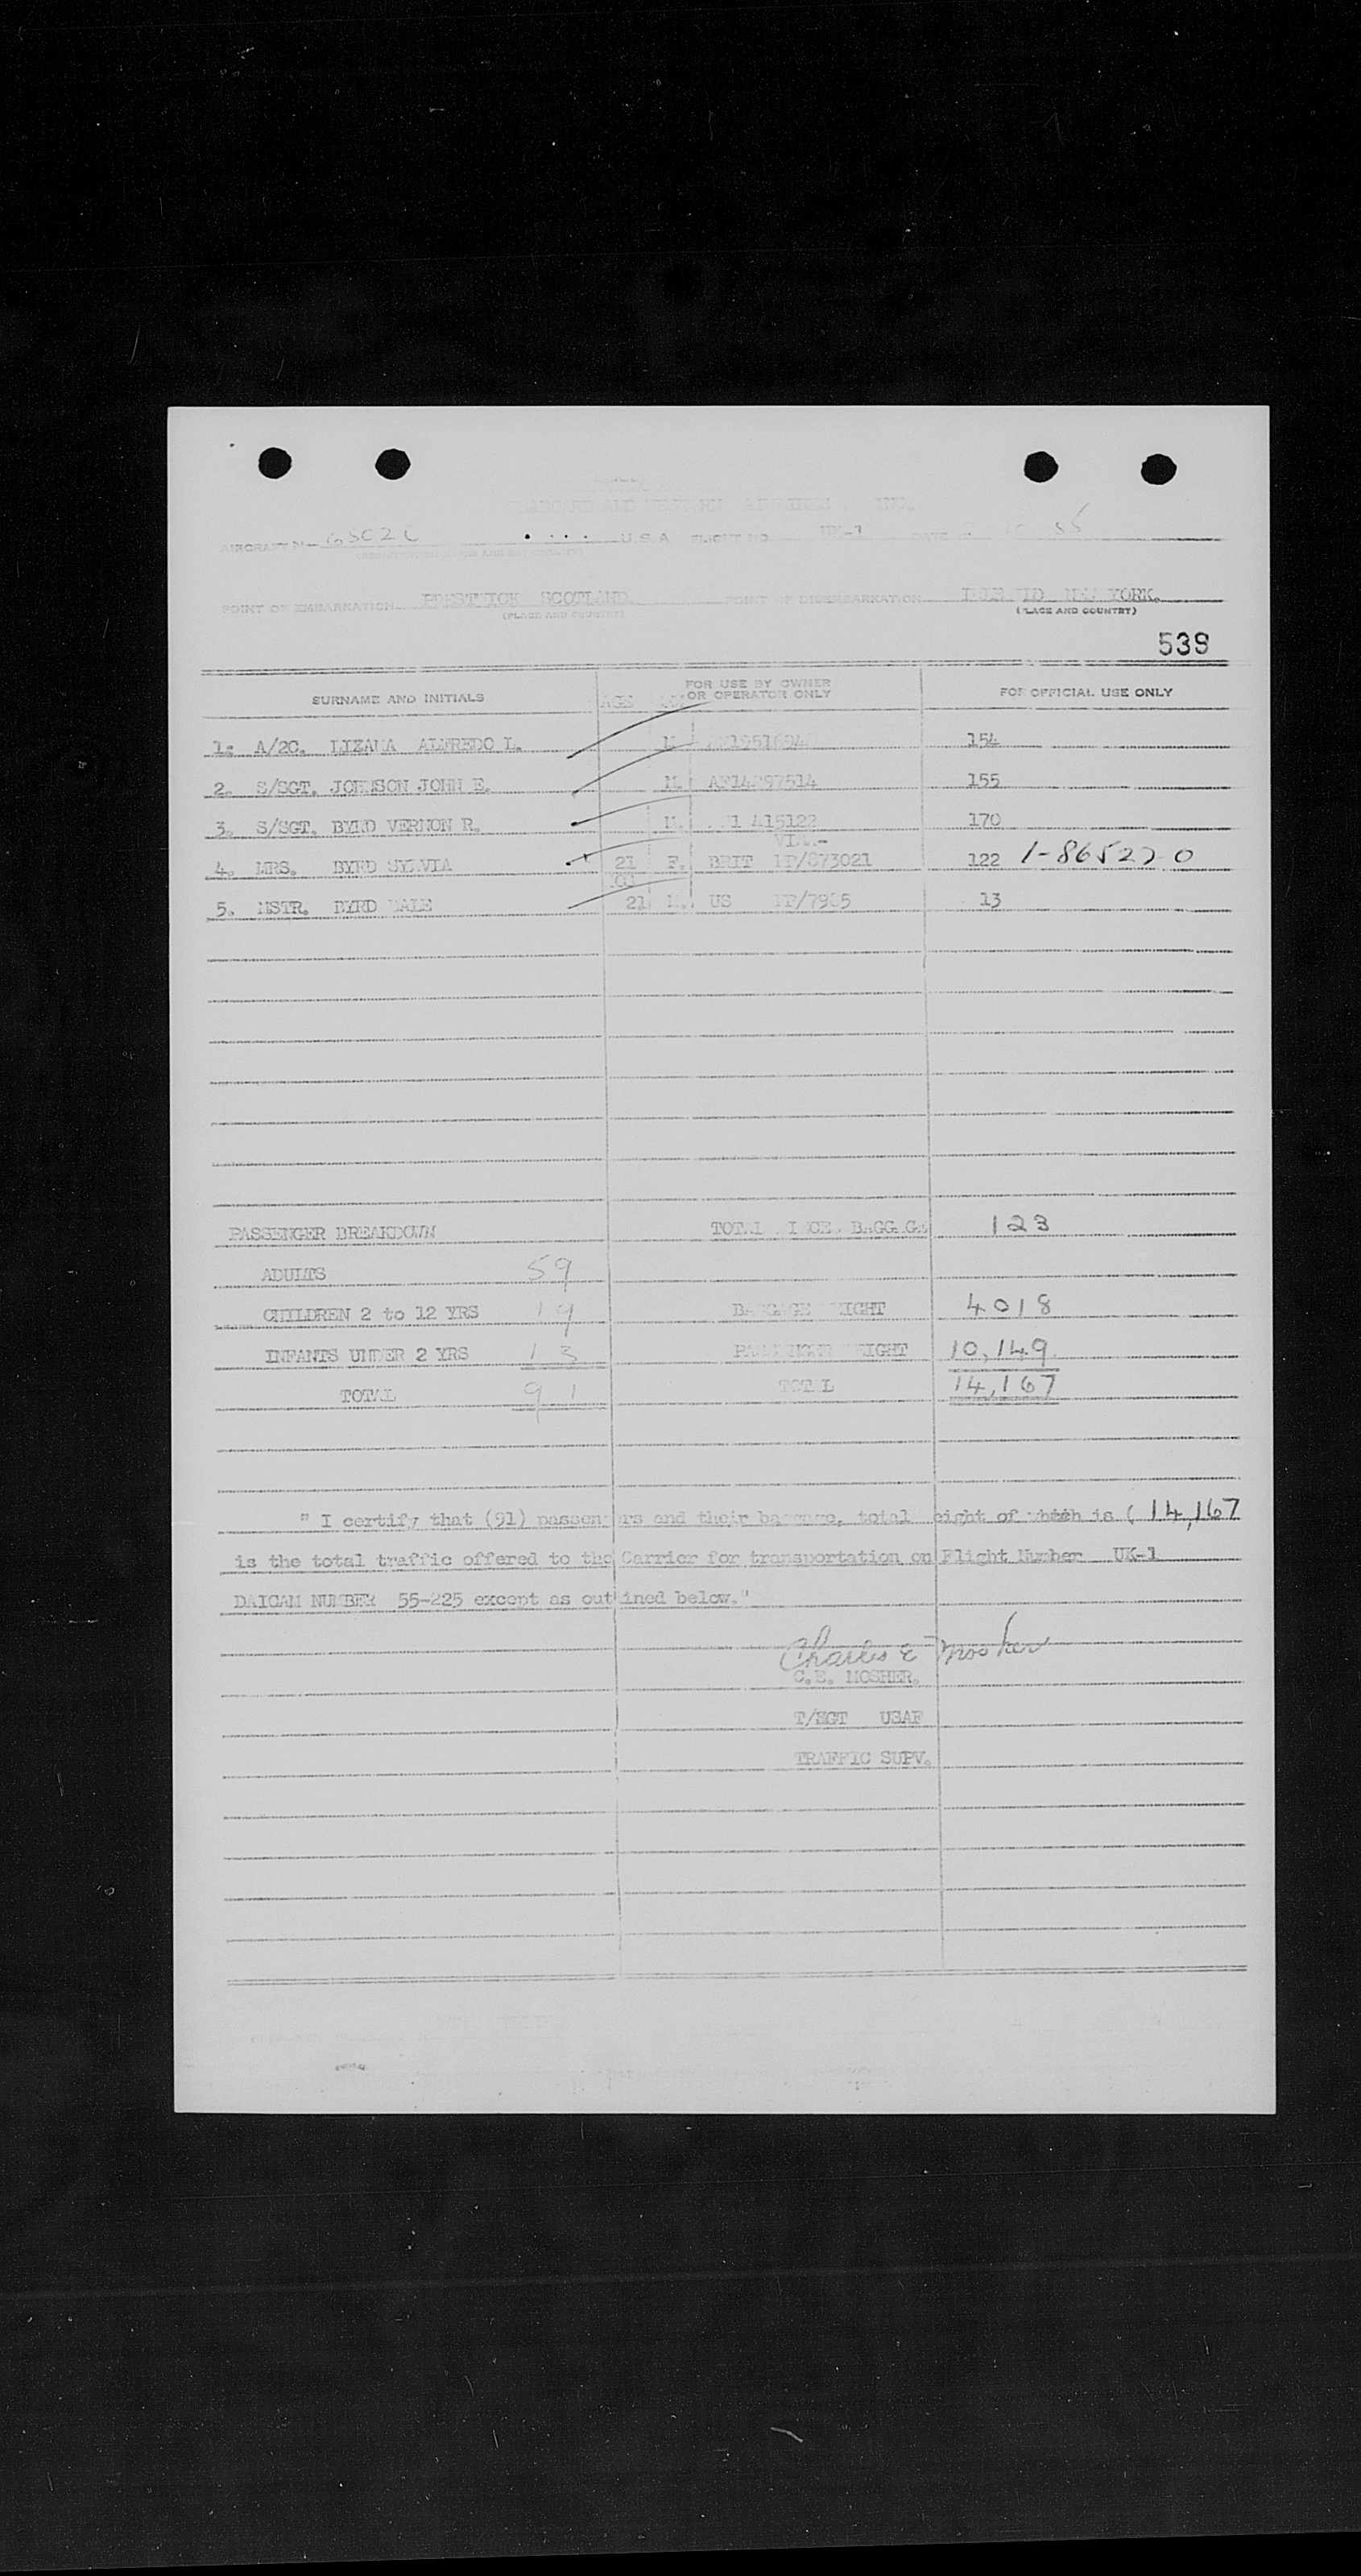 SEABOARD AND WESTERN AIRLINES INC
AIRCRAFT N- 6502C U.S.A FLIGHT NO UK-1 DATE 55
POINT OF EMBARKATION PRESTWICK SCOTLAND. POINT OF DISEMBARKATION NEW YORK.
(PLACE AND COUNTRY) (PLACE AND COUNTRY)
539
SURNAME AND INITIALS AGE FOR USE BY OWNER OR OPERATOR ONLY FOR OFFICIAL USE ONLY
1. A/2C. LIZAMA ALFREDO L. M 154
2. S/SGT. JOHNSON JOHN E. M. 155
3. S/SGT. BYRD VERNON R. M. 170
4. MRS. BYRD SYLVIA 21 F. BRIT 122
5. MSTR. BYRD DALE 21 M. US 13
PASSENGER BREAKDOWN TOTAL BAGGAGE 123
ADULTS 59
CHILDREN 2 to 12 YRS 19 BAGGAGE WEIGHT 4018
INFANTS UNDER 2 YRS 13 PASSENGER WEIGHT 10,149
TOTAL 91 TOTAL 14,167
" I certify that (91) passengers and their baggage, total weight of which is ( 14,167
is the total traffic offered to the Carrier for transportation on Flight Number UK-1
DAICAM NUMBER 55-225 except as outlined below."
Charles E Mosher
C.E. MOSHER.
T/SGT USAF
TRAFFIC SUPV.